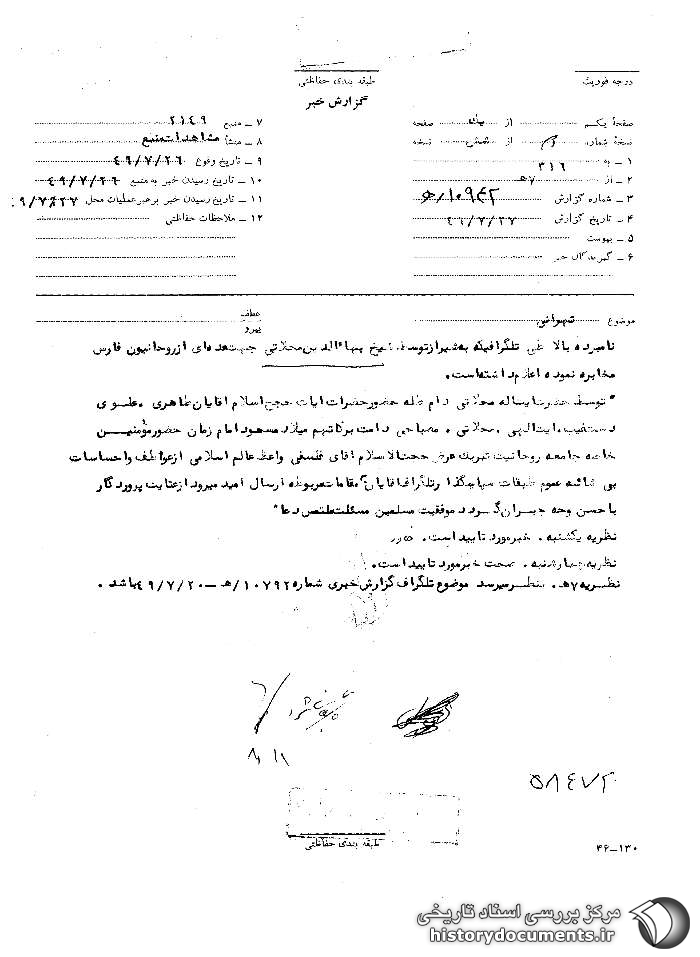 طبقه بندی حفاظتی
درجه فوریت
گزارش خبر
صفحهٔ یکم از یک صفحه
نسخهٔ شماره از شش نسخه
۱ ــ به ۳۱۶
۲ ــ از ۷ه
۳ ــ شماره گزارش ۱۰۹۴۲/ه
۴ ــ تاریخ گزارش ۴۹/۷/۲۷
۵ ــ پیوست
۶ ــ گیرندگان خبر
۷ ــ منبع ۲۱۴۹
۸ ــ منشأ مشاهدات منبع
۹ ــ تاریخ وقوع ۴۹/۷/۲۶
۱۰ ــ تاریخ رسیدن خبر به منبع ۴۹/۷/۲۶
۱۱ ــ تاریخ رسیدن خبر برهبر عملیات محل ۹/۷/۲۷
۱۲ ــ ملاحظات حفاظتی
موضوع تهرانی
عطف
پیرو
نامبرده بالا طی تلگرافیکه به شیراز توسط شیخ بهاءالدین محلاتی جهت عده‌ای از روحانیون فارس
مخابره نموده اعلام داشته است.
" توسط حضرت ایه‌اله محلاتی دام ظله حضور حضرات ایات حجج اسلام اقایان طاهری . علوی
دستغیب . ایت‌الهی . محلاتی . مصباحی دامت برکاتهم میلاد مسعود امام زمان حضور مؤمنین
خاصه جامعه روحانیت تبریک عرض حجت‌الاسلام اقای فلسفی واعظ عالم اسلامی از عواطف و احساسات
بی شائبه عموم طبقات سپاسگذار تلگرافات اقایان بمقامات مربوطه ارسال امید میرود از عنایت پروردگار
با حسن وجه جبران گردد موفقیت مسلمین مسئلت ملتمس دعا "
نظریه یکشنبه . خبر مورد تایید است .
نظریه چهارشنبه . صحت خبر مورد تایید است .
نظریه ۷ه . بنظر میرسد موضوع تلگراف گزارش خبری شماره ۱۰۷۹۲/ه ــ ۴۹/۷/۲۰ باشد .
۵۸۴۷۲
طبقه بندی حفاظتی
۴۶ــ۱۳۰
مرکز بررسی اسناد تاریخی
historydocuments.ir